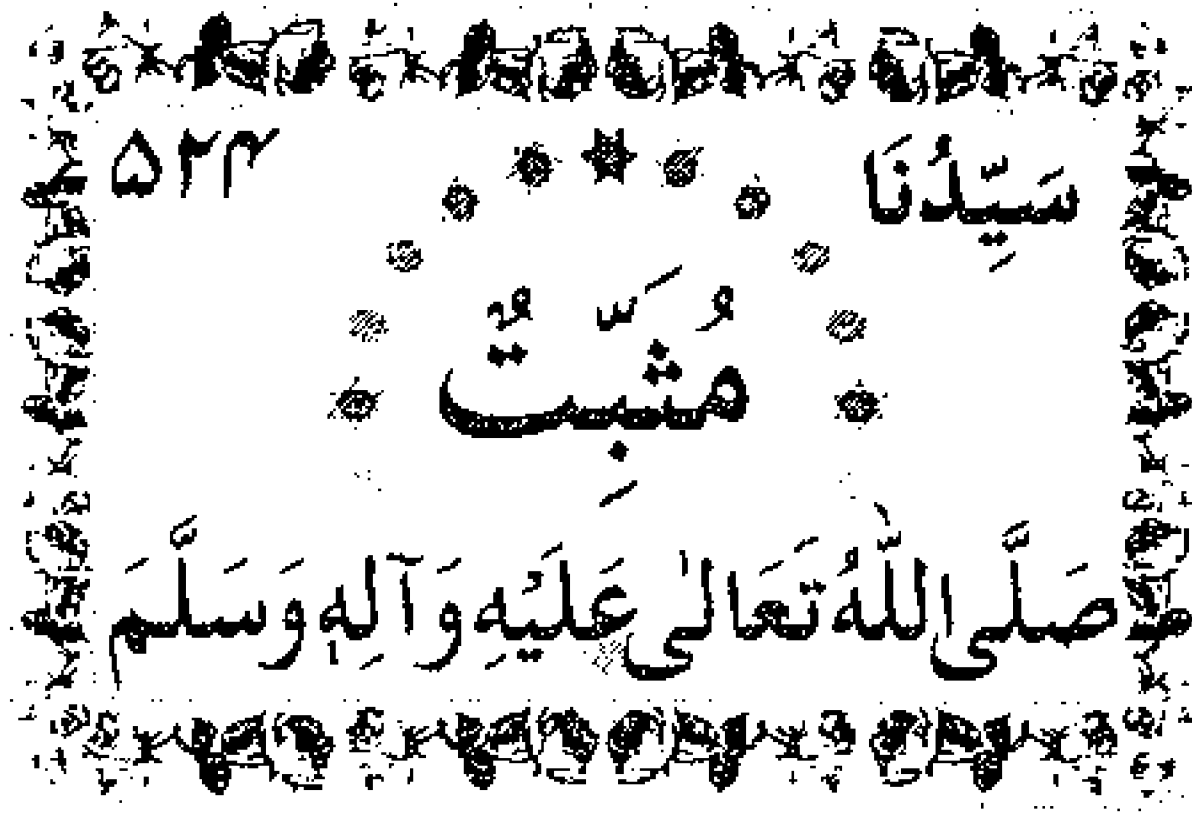 سَيِّدُنَا ۵۲۴
مُثَبِّتٌ
صَلَّى اللّٰهُ تَعَالىٰ عَلَيْهِ وَآلِهٖ وَسَلَّمَ